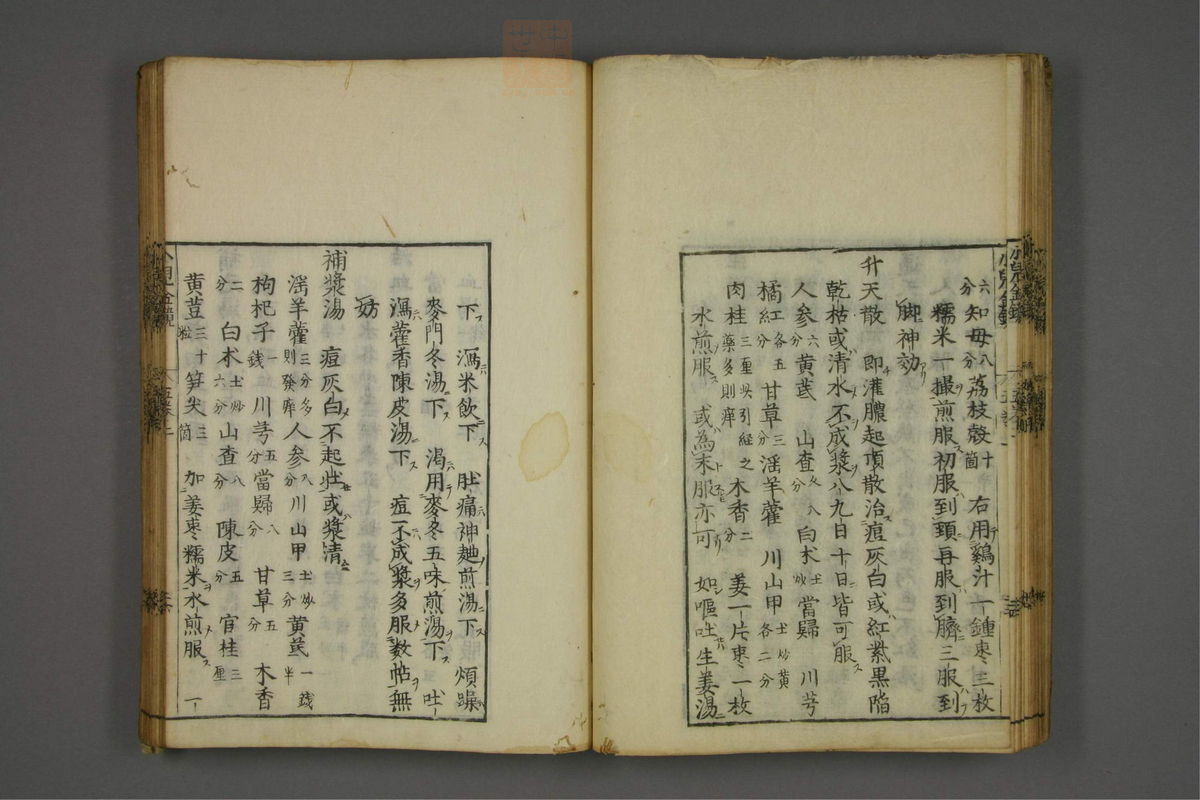 六分知母八分荔枝殼十箇右用鷄汁一鍾棗三枚
糯米一撮煎服初服到頸再服到臍三服到
脚神効
升天散 即灌膿起頂散治痘灰白或紅紫黒陥
乾枯或清水不成漿八九日十日皆可服
人参六分黄芪 山查八分白朮土炒當歸 川芎
橘紅各五分甘草三分淫羊藿 川山甲土炒黄各二分
肉桂三厘以引経之藥多則痒木香二分姜一片棗一枚
水煎服 或為末服亦可 如嘔吐生姜湯
下 瀉米飲下 肚痛神麯煎湯下 煩躁
麥門冬湯下 渇用麥冬五味煎湯下 吐
瀉藿香陳皮湯下 痘不成漿多服数帖無
妨
補漿湯 痘灰白不起壮或漿清
淫羊藿三分多則發痒人参八分川山甲土炒三分黄芪一錢半
枸杞子一錢川芎五分當歸八分甘草五分木香
二分白朮土炒六分山查八分陳皮五分官桂三厘
黄荳三十粒笋尖三箇加姜棗糯米水煎服